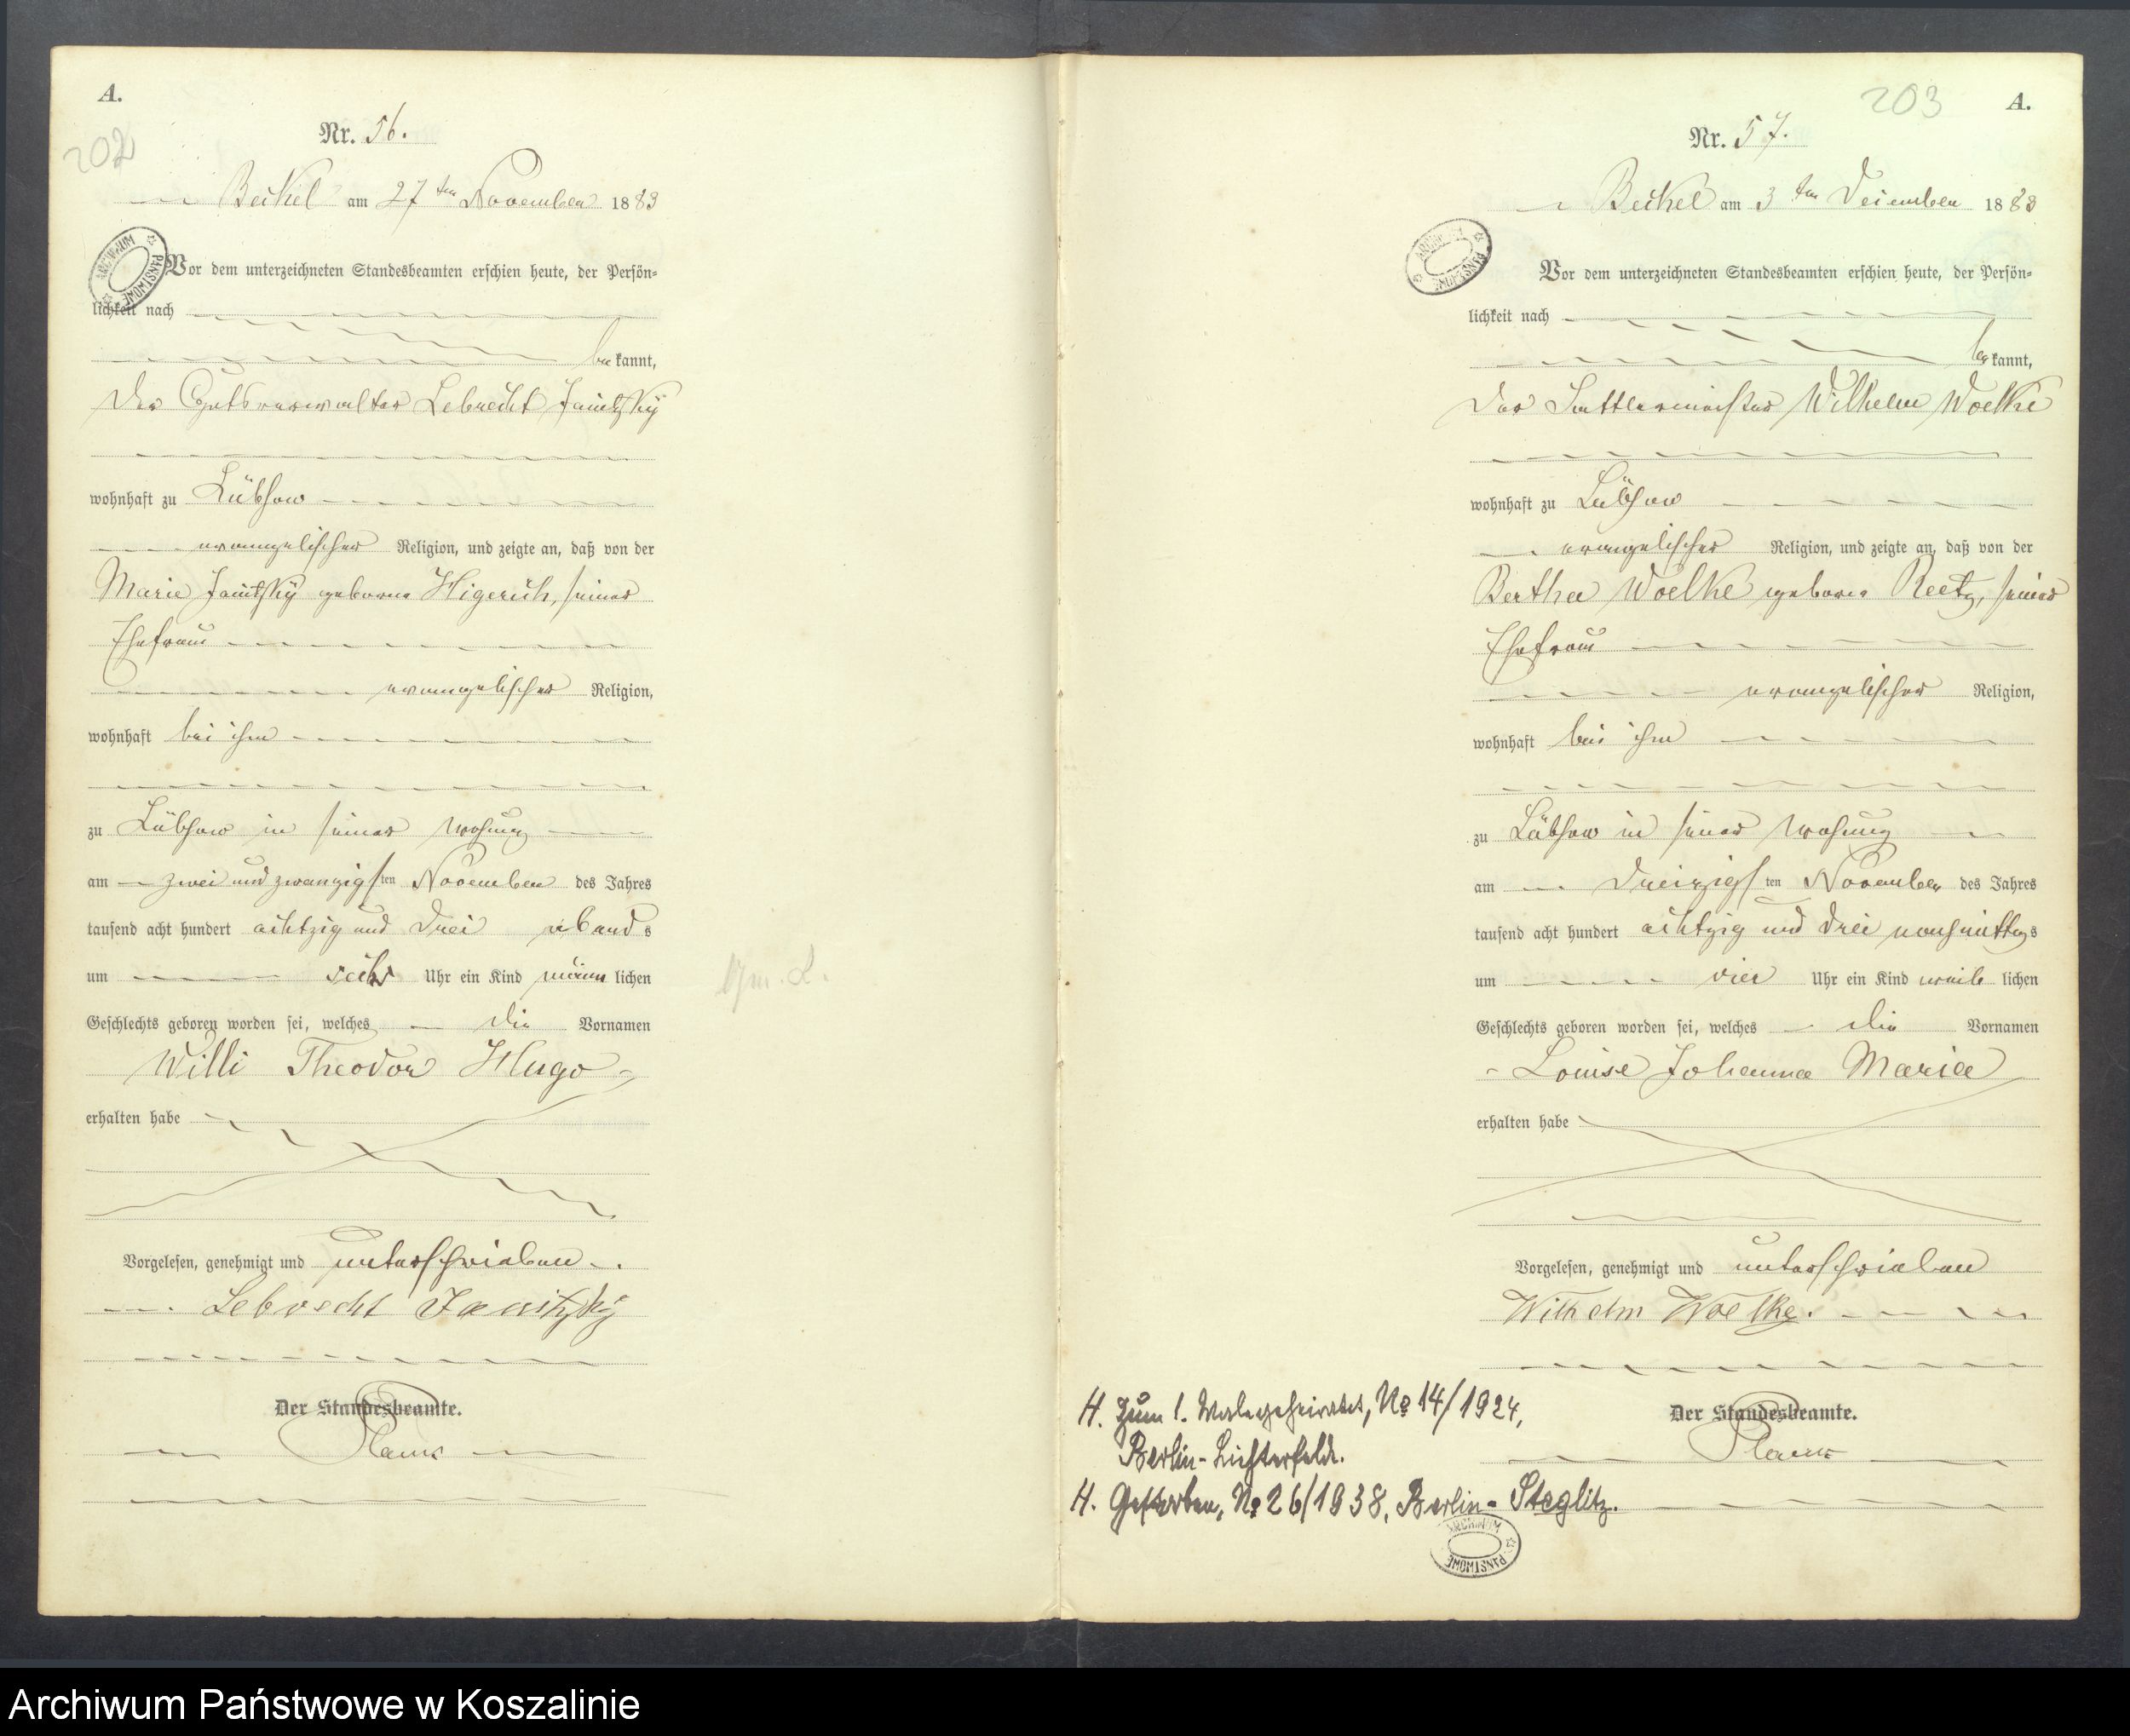 A.
202
Nr. 56.
Beckel am 27ten November 1883
ARCHIWUM PAŃSTWOWE
Vor dem unterzeichneten Standesbeamten erschien heute, der Persön=
lichkeit nach
be kannt,
der Gutsverwalter Lebrecht Janitzky
wohnhaft zu Lübzow
evangelischer Religion, und zeigte an, daß von der
Marie Janitzky geborne, seiner
Ehefrau
evangelischer Religion,
wohnhaft bei ihm
zu Lübzow in seiner Wohnung
am zwei und zwanzigsten November des Jahres
tausend acht hundert achtzig und drei abends
um sechs Uhr ein Kind männlichen
Geschlechts geboren worden sei, welches die Vornamen
Willi Theodor Hugo
erhalten habe
Vorgelesen, genehmigt und unterschrieben
Lebrecht Janitzky
Der Standesbeamte.
203
A.
Nr. 57.
Beckel am 3ten December 1883
ARCHIWUM PAŃSTWOWE
Vor dem unterzeichneten Standesbeamten erschien heute, der Persön=
lichkeit nach
be kannt,
der Sattlermeister Wilhelm Woelke
wohnhaft zu Lübzow
evangelischer Religion, und zeigte an, daß von der
Bertha Woelke geborne Reetz, seiner
Ehefrau
evangelischer Religion,
wohnhaft bei ihm
zu Lübzow in seiner Wohnung
am dreizigsten November des Jahres
tausend acht hundert achtzig und drei nachmittags
um vier Uhr ein Kind weiblichen
Geschlechts geboren worden sei, welches die Vornamen
Louise Johanna Maria
erhalten habe
Vorgelesen, genehmigt und unterschrieben
Wilhelm Woelke.
Der Standesbeamte.
H. Zum 1. Male geheiratet, No 14/1924,
Berlin-Lichterfelde.
H. Gestorben, No 26/1938, Berlin-Steglitz.
ARCHIWUM PAŃSTWOWE
Archiwum Państwowe w Koszalinie